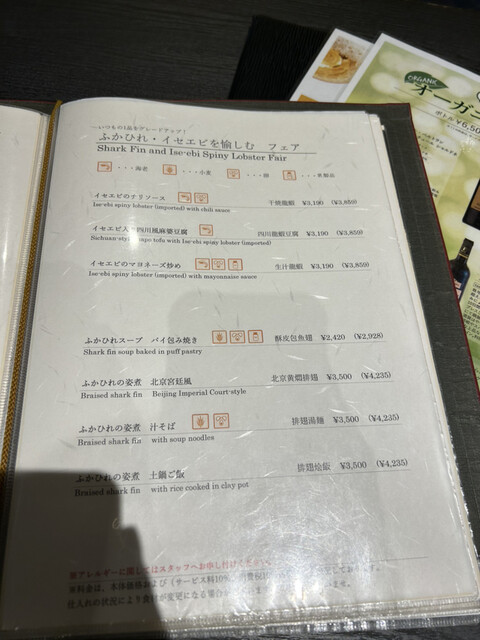 ～いつもの1品をグレードアップ！
ふかひれ・イセエビを愉しむ フェア
Shark Fin and Ise-ebi Spiny Lobster Fair
・・・海老 ・・・小麦 ・・・卵 ・・・乳製品
イセエビのチリソース 干焼龍蝦 ¥3,190 (¥3,859)
Ise-ebi spiny lobster (imported) with chili sauce
イセエビ入 四川風麻婆豆腐 四川龍蝦豆腐 ¥3,190 (¥3,859)
Sichuan-style mapo tofu with Ise-ebi spiny lobster (imported)
イセエビのマヨネーズ炒め 生汁龍蝦 ¥3,190 (¥3,859)
Ise-ebi spiny lobster (imported) with mayonnaise sauce
ふかひれスープ パイ包み焼き 酥皮包魚翅 ¥2,420 (¥2,928)
Shark fin soup baked in puff pastry
ふかひれの姿煮 北京宮廷風 北京黄燜排翅 ¥3,500 (¥4,235)
Braised shark fin Beijing Imperial Court-style
ふかひれの姿煮 汁そば 排翅湯麺 ¥3,500 (¥4,235)
Braised shark fin with soup noodles
ふかひれの姿煮 土鍋ご飯 排翅烩飯 ¥3,500 (¥4,235)
Braised shark fin with rice cooked in clay pot
※アレルギーに関してはスタッフへお申し付けください。
※料金は、本体価格および（サービス料10%
仕入れの状況により食材が変更になる場合が
ORGANIC
オーガニ
ボトル ¥5,50